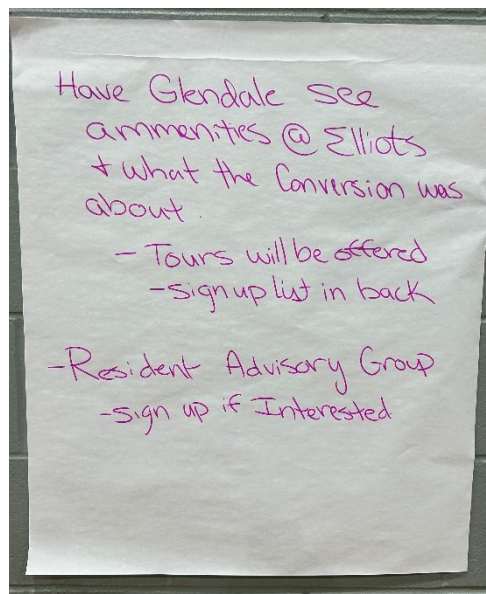 Have Glendale see
ammenities @ Elliots
+ what the Conversion was
about.
- Tours will be offered
- sign up list in back
- Resident Advisory Group
- sign up if Interested